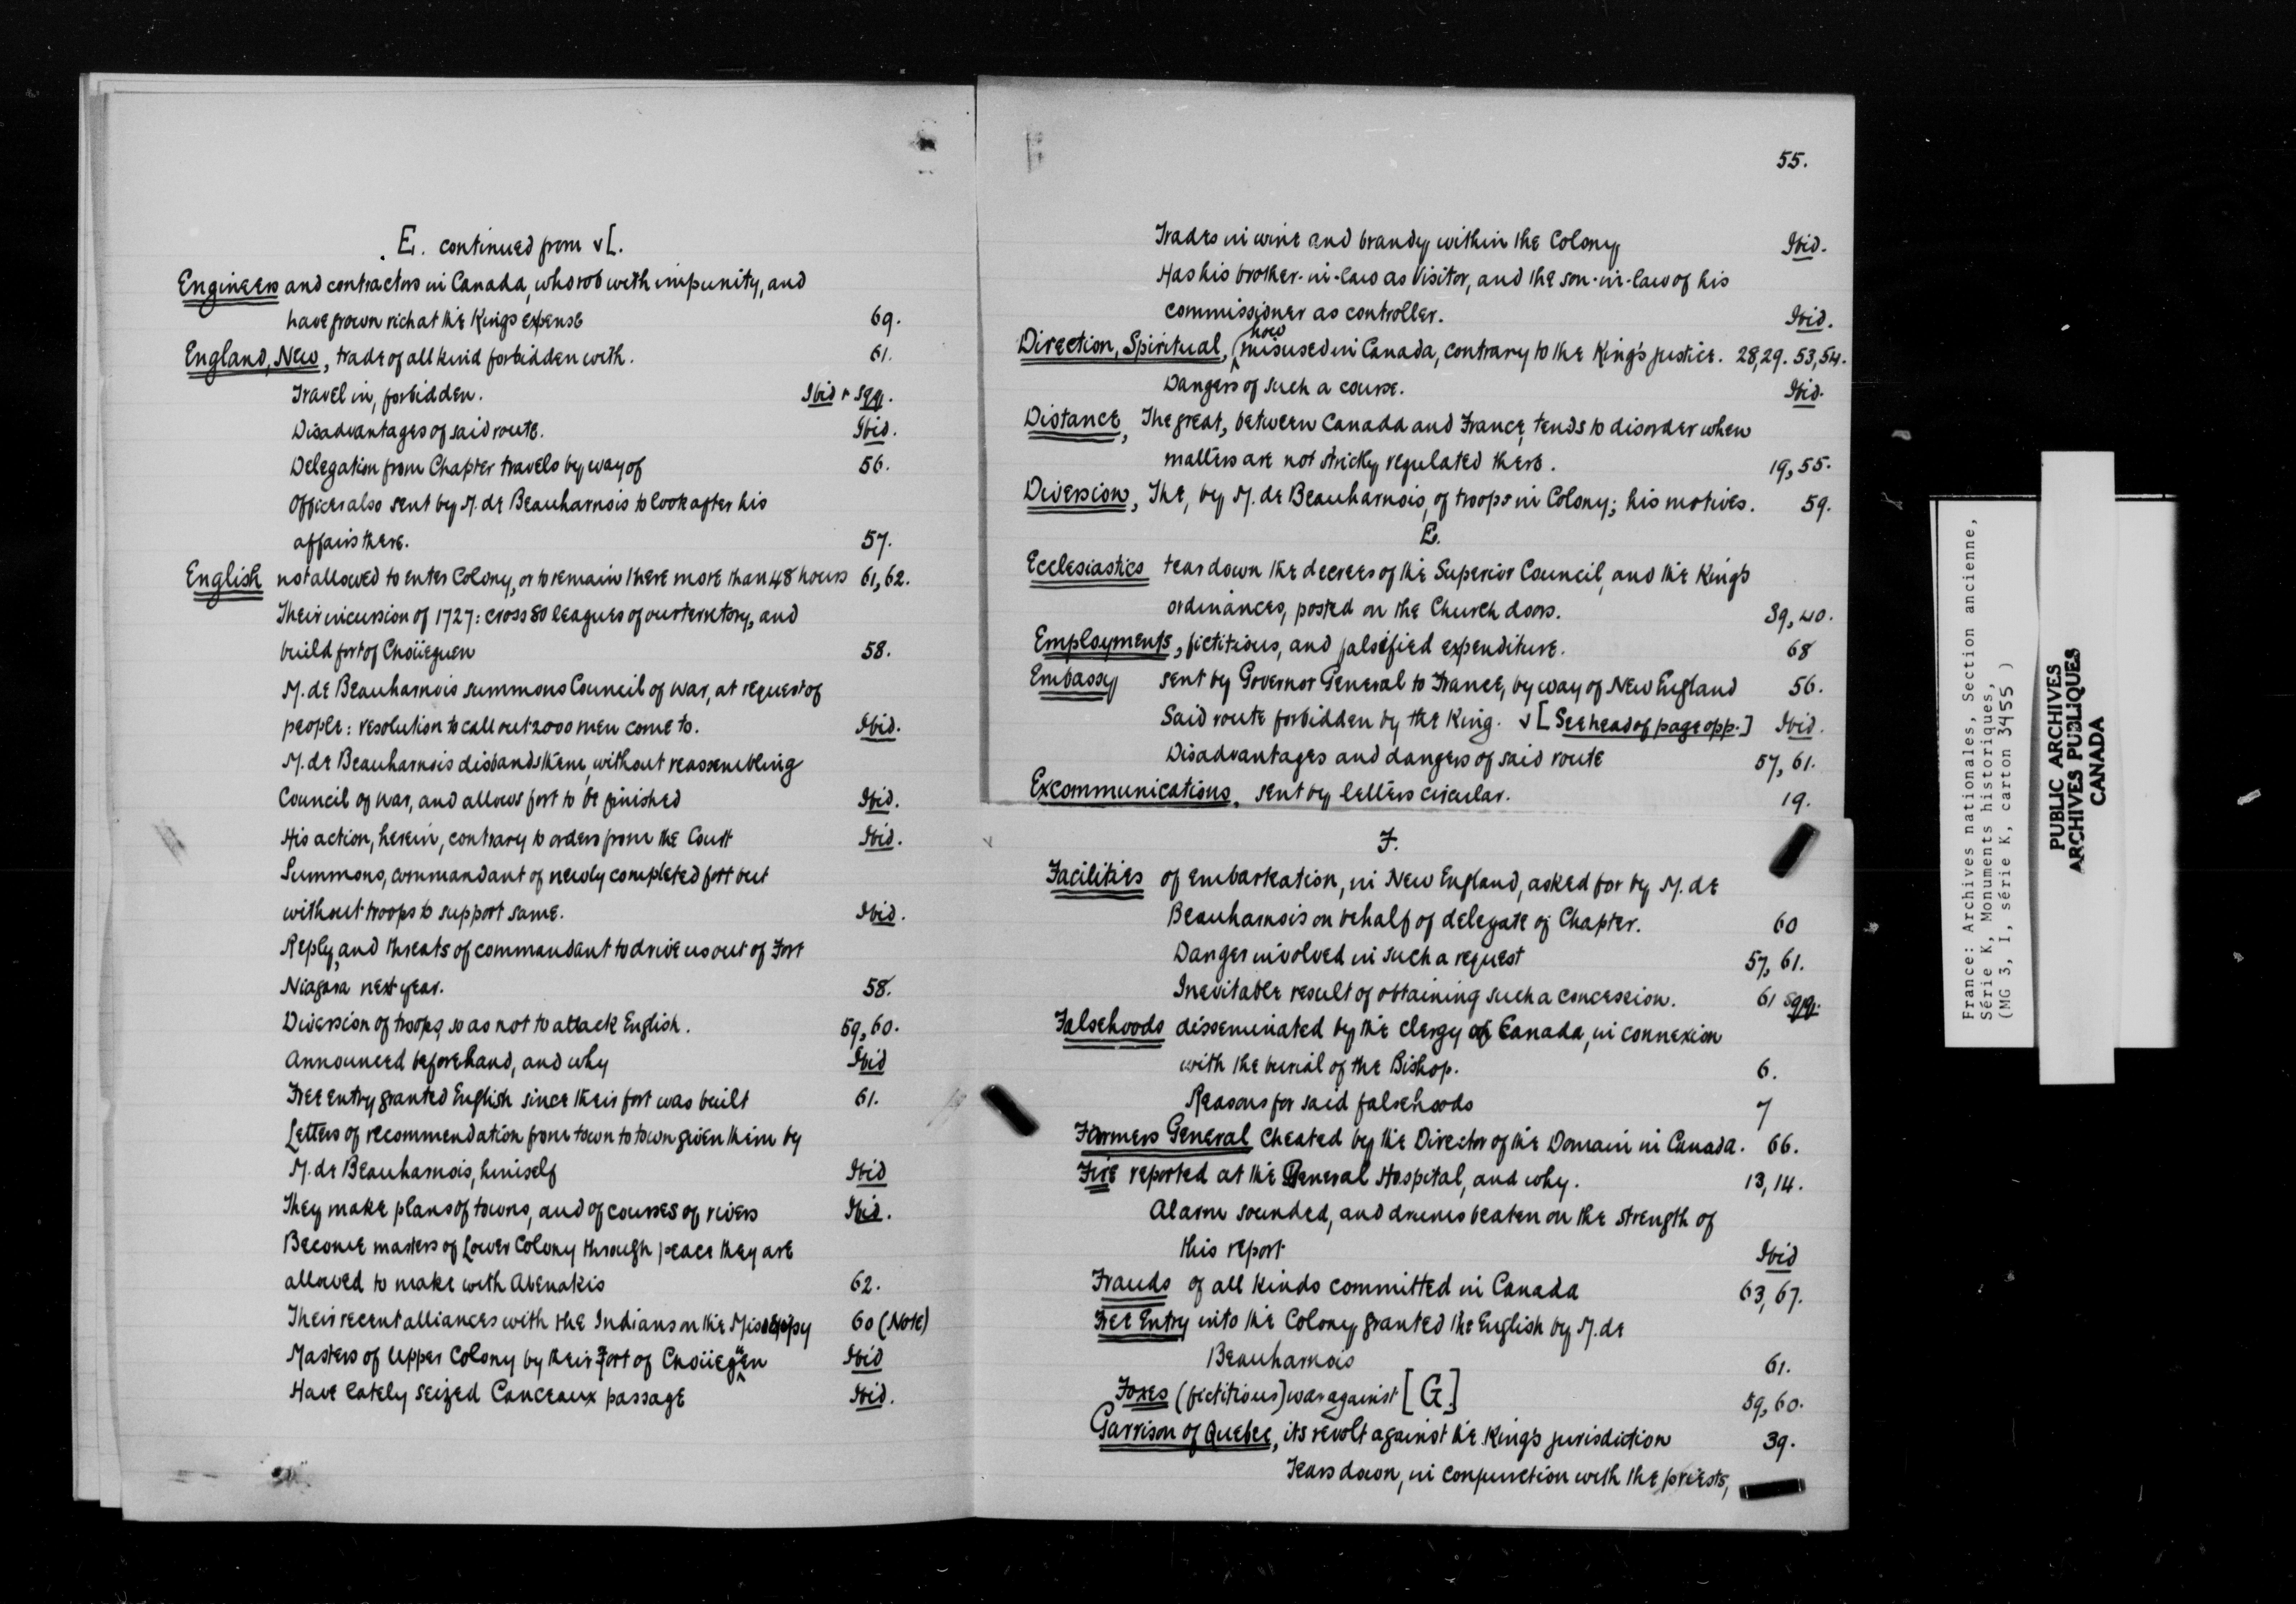 E. continued from √[.
Engineers and contractors in Canada, who rob with impunity, and
have grown rich at the King's expense 69.
England, New, trade of all kind forbidden with. 61.
Travel in, forbidden. Ibid & sqq.
Disadvantages of said route. Ibid.
Delegation from Chapter travels by way of 56.
Officer also sent by M. de Beauharnois to look after his
affairs there. 57.
English not allowed to enter Colony, or to remain there more than 48 hours 61, 62.
Their incursion of 1727: cross 80 leagues of our terretory, and
build fort of Choüeguen 58.
M. de Beauharnois summons Council of war, at request of
people: resolution to call out 2000 men come to. Ibid.
M. de Beauharnois disbands them, without reassembling
Council of war, and allows fort to be finished Ibid.
His action, herein, contrary to orders from the Court Ibid.
Summons, commandant of newly completed fort but
without troops to support same. Ibid.
Reply, and threats of commandant to drive us out of Fort
Niagara next year. 58.
Diversion of troops, so as not to attack English. 59, 60.
Announced beforehand, and why Ibid
Free entry granted English since their fort was built 61.
Letters of recommendation from town to town given them by
M. de Beauharnois, himself Ibid
They make plans of towns, and of courses of rivers Ibid.
Become masters of Lower Colony through peace they are
allowed to make with Abenakis 62.
Their recent alliances with the Indians on the 60 (Note)
Masters of Upper Colony by their Fort of Choüeguen Ibid
Have lately seized Canceaux passage Ibid.
55.
Trades in wine and brandy within the Colony Ibid.
Has his brother-in-law as Visitor, and the son-in-law of his
commissioner as controller. Ibid.
Direction, Spiritual, how misused in Canada, contrary to the King's justice. 28, 29. 53, 54.
Dangers of such a course. Ibid.
Distance, The great, between Canada and France, tends to disorder when
matters are not strictly regulated there. 19, 55.
Diversion, The, by M. de Beauharnois, of troops in Colony; his motives. 59.
E.
Ecclesiastics tear down the decrees of the Superior Council, and the King's
ordinances, posted on the Church doors. 39, 40.
Employments, fictitious, and falsified expenditure. 68
Embassy sent by Governor General to France, by way of New England 56.
Said route forbidden by the King. √ [See head of page opp.] Ibid.
Disadvantages and dangers of said route 57, 61.
Excommunications, sent by letters circular. 19.
F.
Facilities of embarkation, in New England, asked for by M. de
Beauharnois on behalf of delegate of Chapter. 60
Danger involved in such a request 57, 61.
Inevitable result of obtaining such a concession. 61 sqq.
Falsehoods disseminated by the clergy of Canada, in connexion
with the burial of the Bishop. 6.
Reasons for said falsehoods 7
Farmers General cheated by the Director of the Domain in Canada. 66.
Fire reported at the General Hospital, and why. 13, 14.
Alarm sounded, and drums beaten on the strength of
this report Ibid
Frauds of all kinds committed in Canada 63, 67.
Free Entry into the Colony granted the English by M. de
Beauharnois 61.
Foxes (fictitious) war against [G.] 59, 60.
Garrison of Quebec, its revolt against the King's jurisdiction 39.
Tears down, in conjunction with the priests,
France: Archives nationales, Section ancienne,
Série K, Monuments historiques,
(MG 3, I, série K, carton 3455 )
PUBLIC ARCHIVES
ARCHIVES PUBLIQUES
CANADA